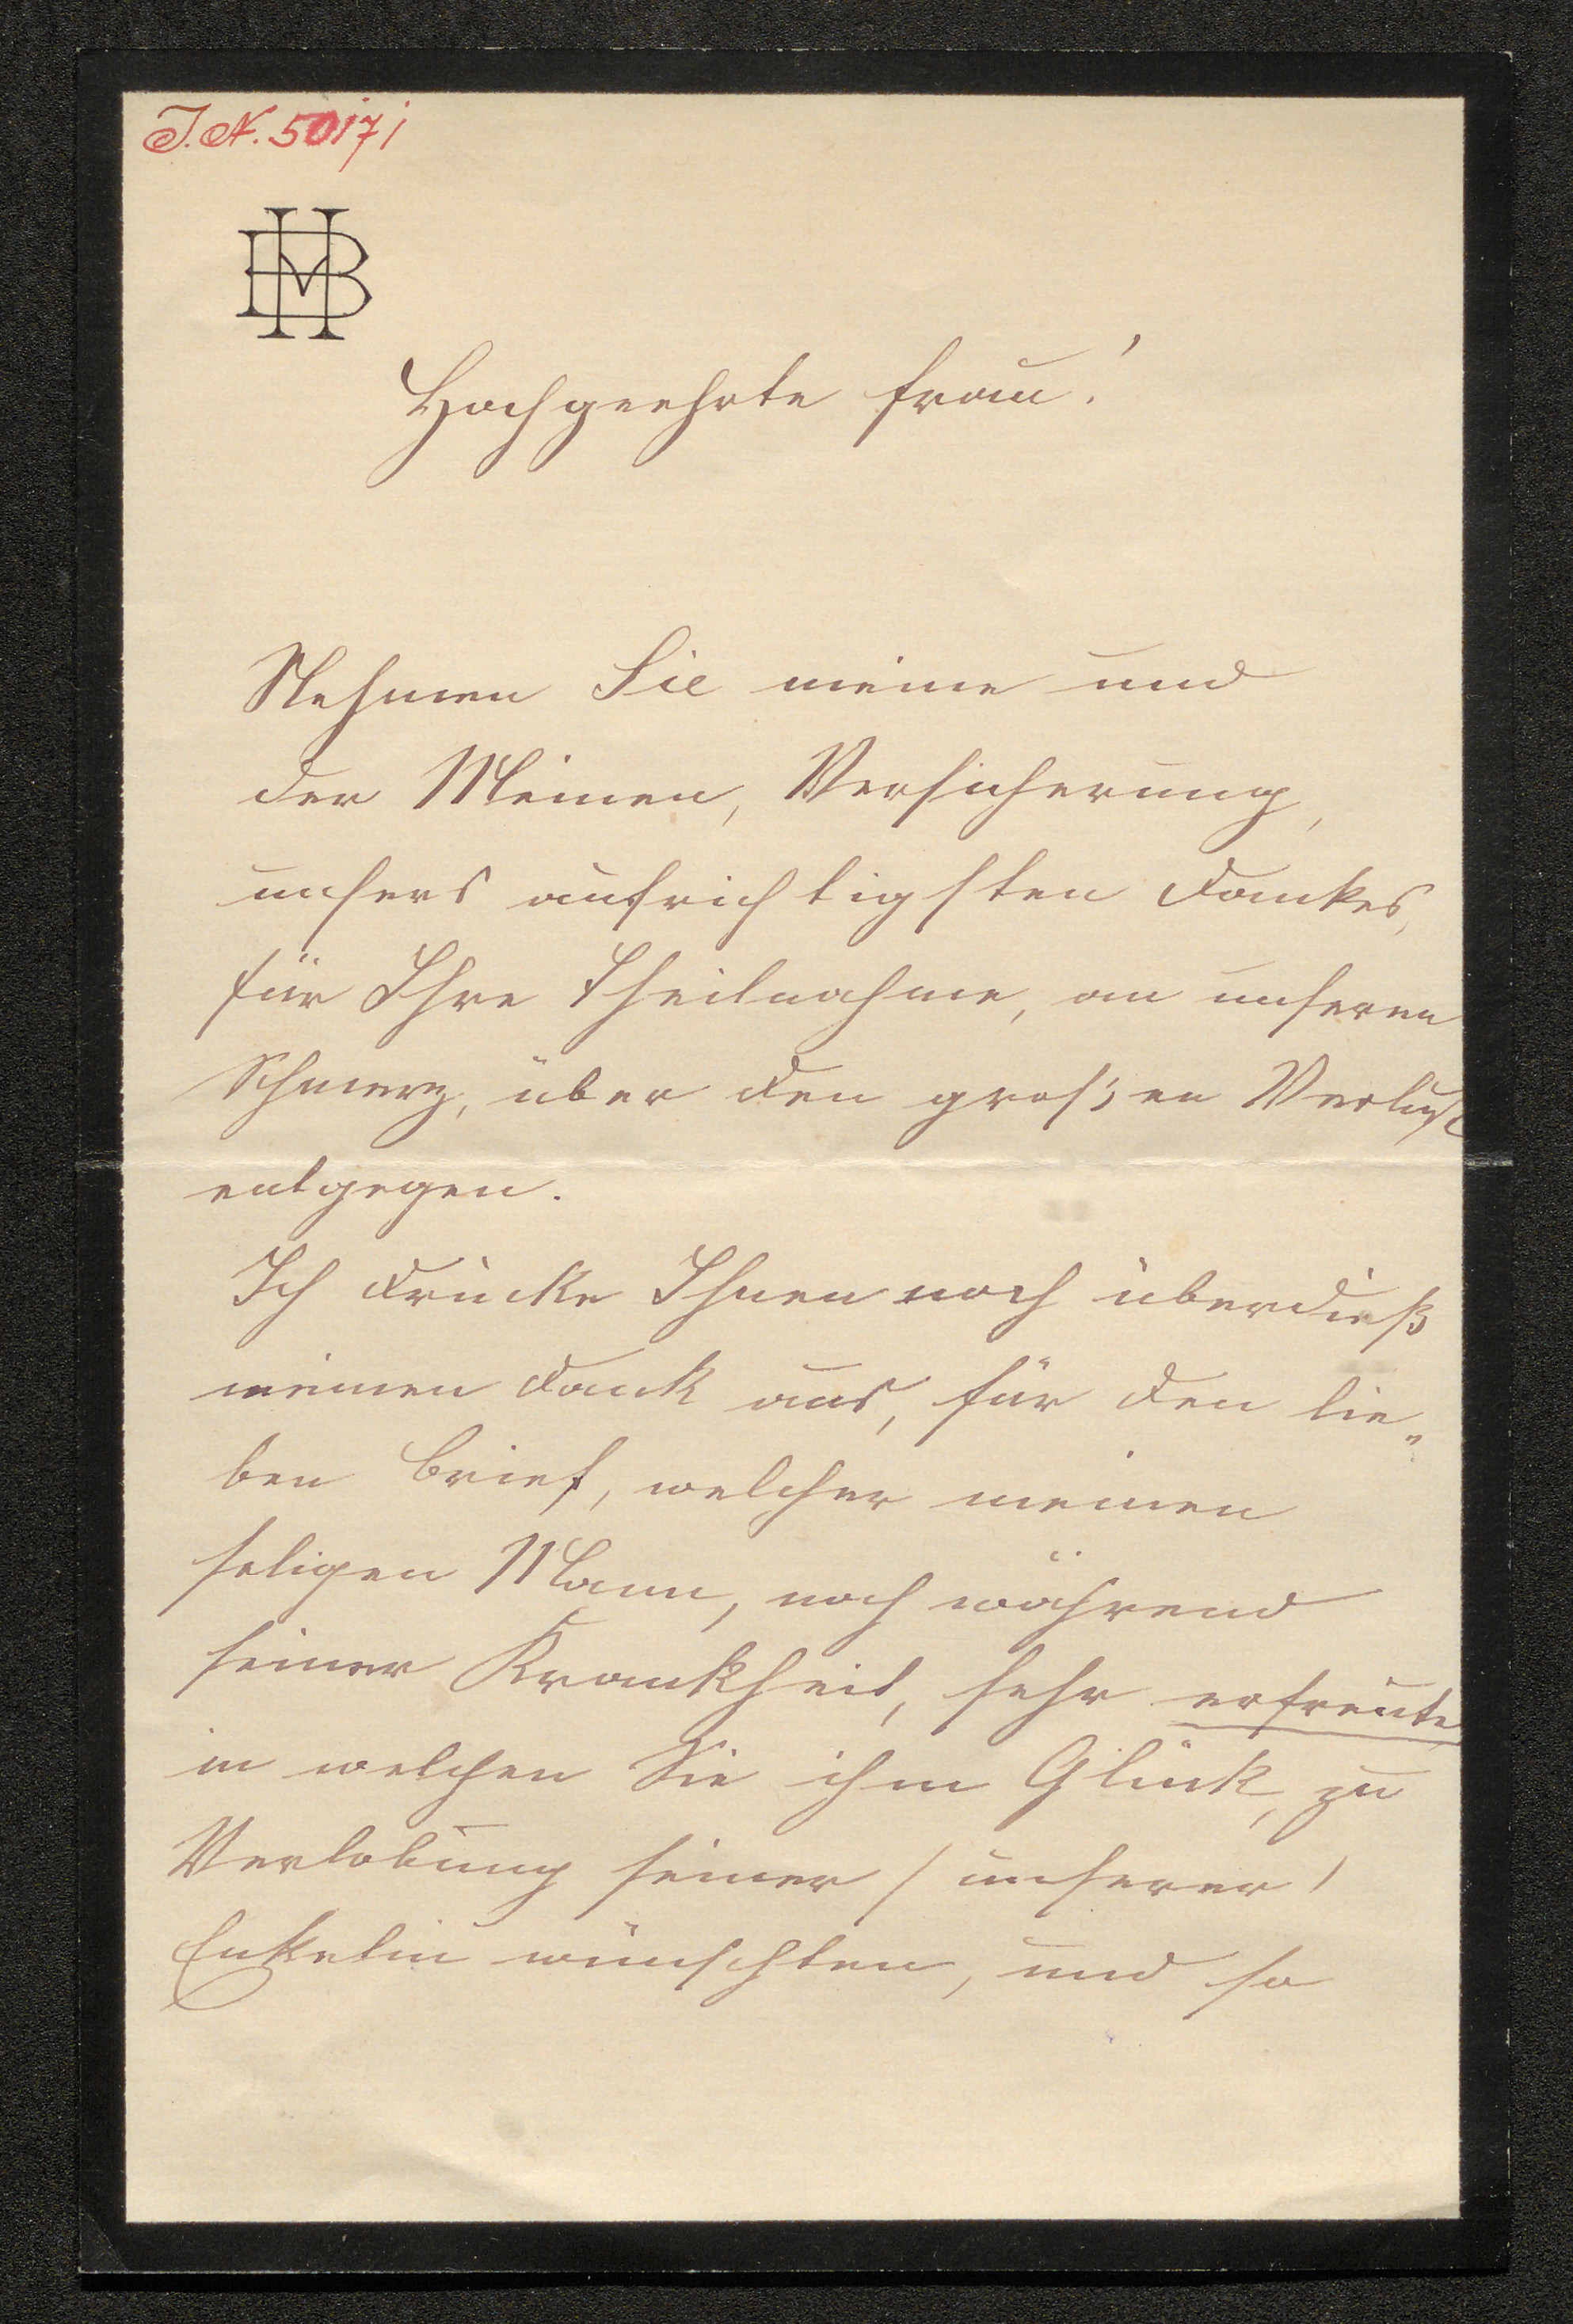 I.N. 50171
HMB
Hochgeehrte Frau!
Nehmen Sie meine und
der Meinen, Versicherung,
unsers aufrichtigsten Dankes,
für Ihre Theilnahme, an unseren
Schmerz, über den großen Verlust
entgegen.
Ich drücke Ihnen noch überdieß
meinen Dank aus, für den lie„
ben Brief, welcher meinen
seligen Mann, noch während
seiner Krankheit, sehr erfreute
in welchen Sie ihm Glück, zu
Verlobung seiner / unserer /
Enkelin wünschten, und so